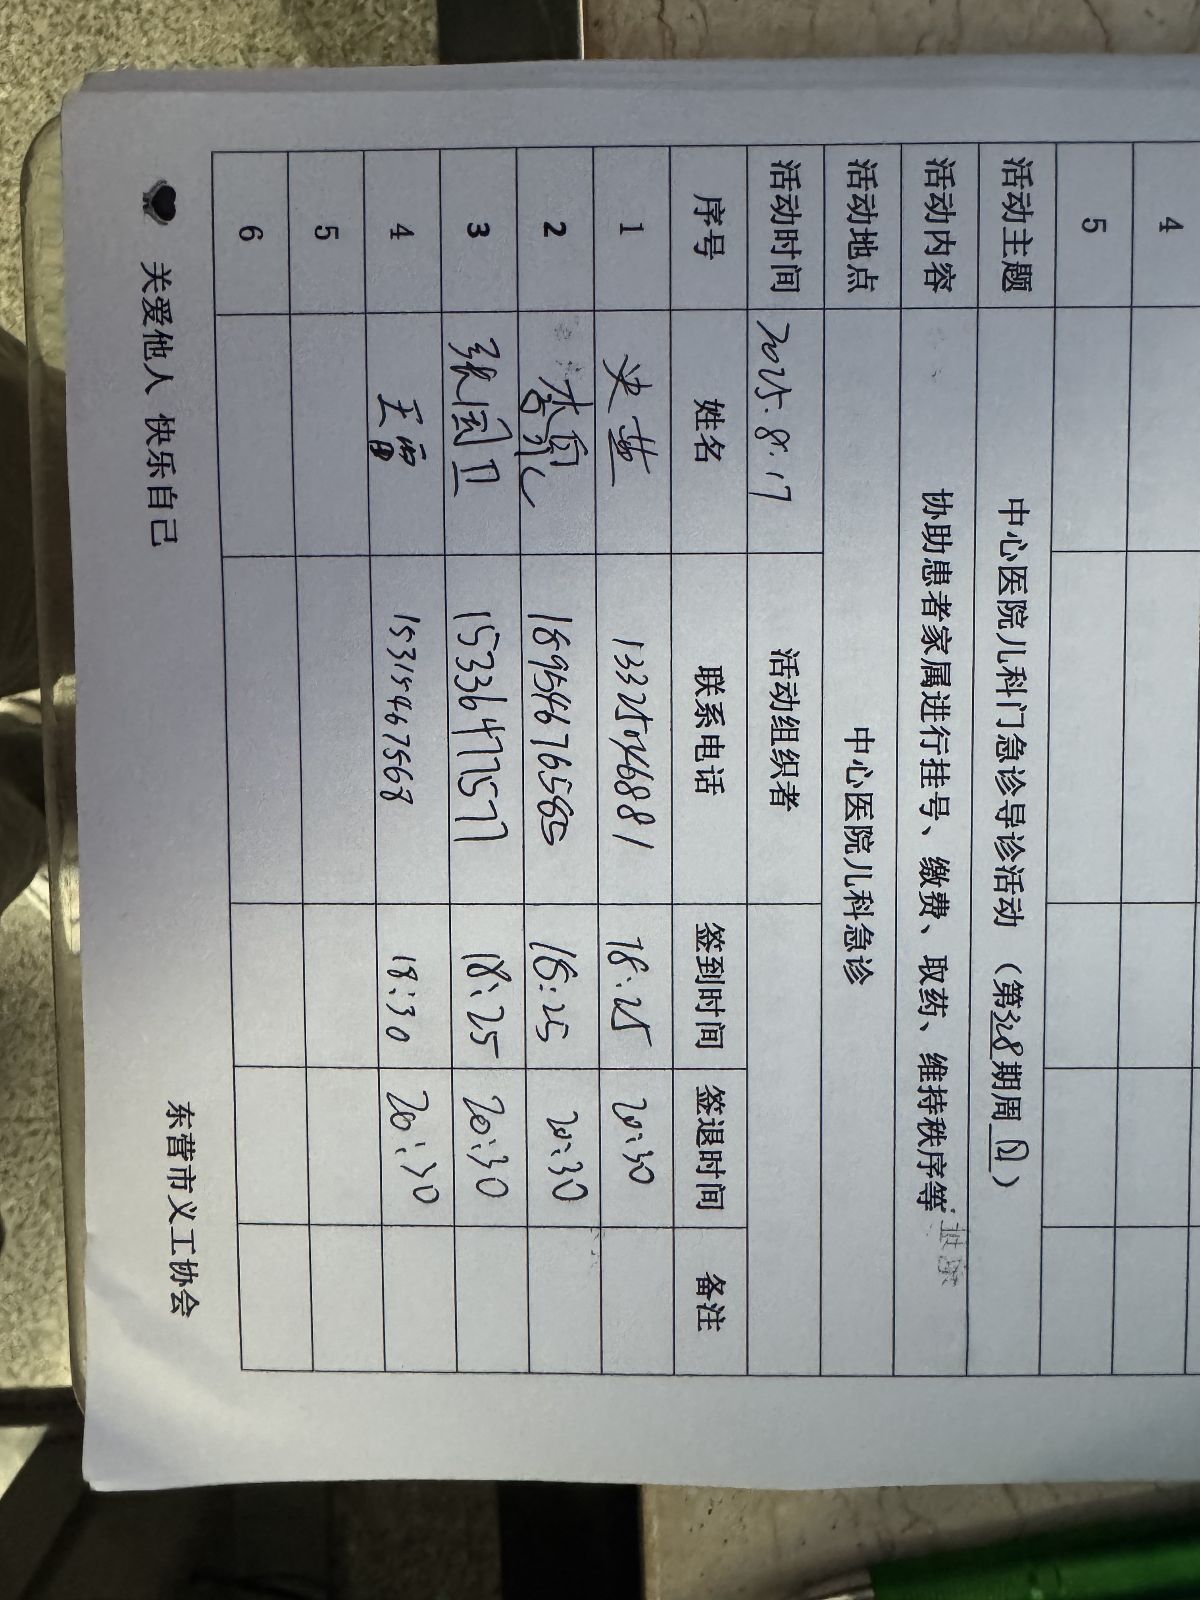 4
5
活动主题 中心医院儿科门急诊导诊活动（第328期周日）
活动内容 协助患者家属进行挂号、缴费、取药、维持秩序等
活动地点 中心医院儿科急诊
活动时间 2025.8.17 活动组织者
序号 姓名 联系电话 签到时间 签退时间 备注
1 史燕 13325046881 18:25 20:30
2 18954676585 18:25 20:30
3 张国卫 15336477577 18:25 20:30
4 王 15315467568 18:30 20:30
5
6
关爱他人 快乐自己 东营市义工协会